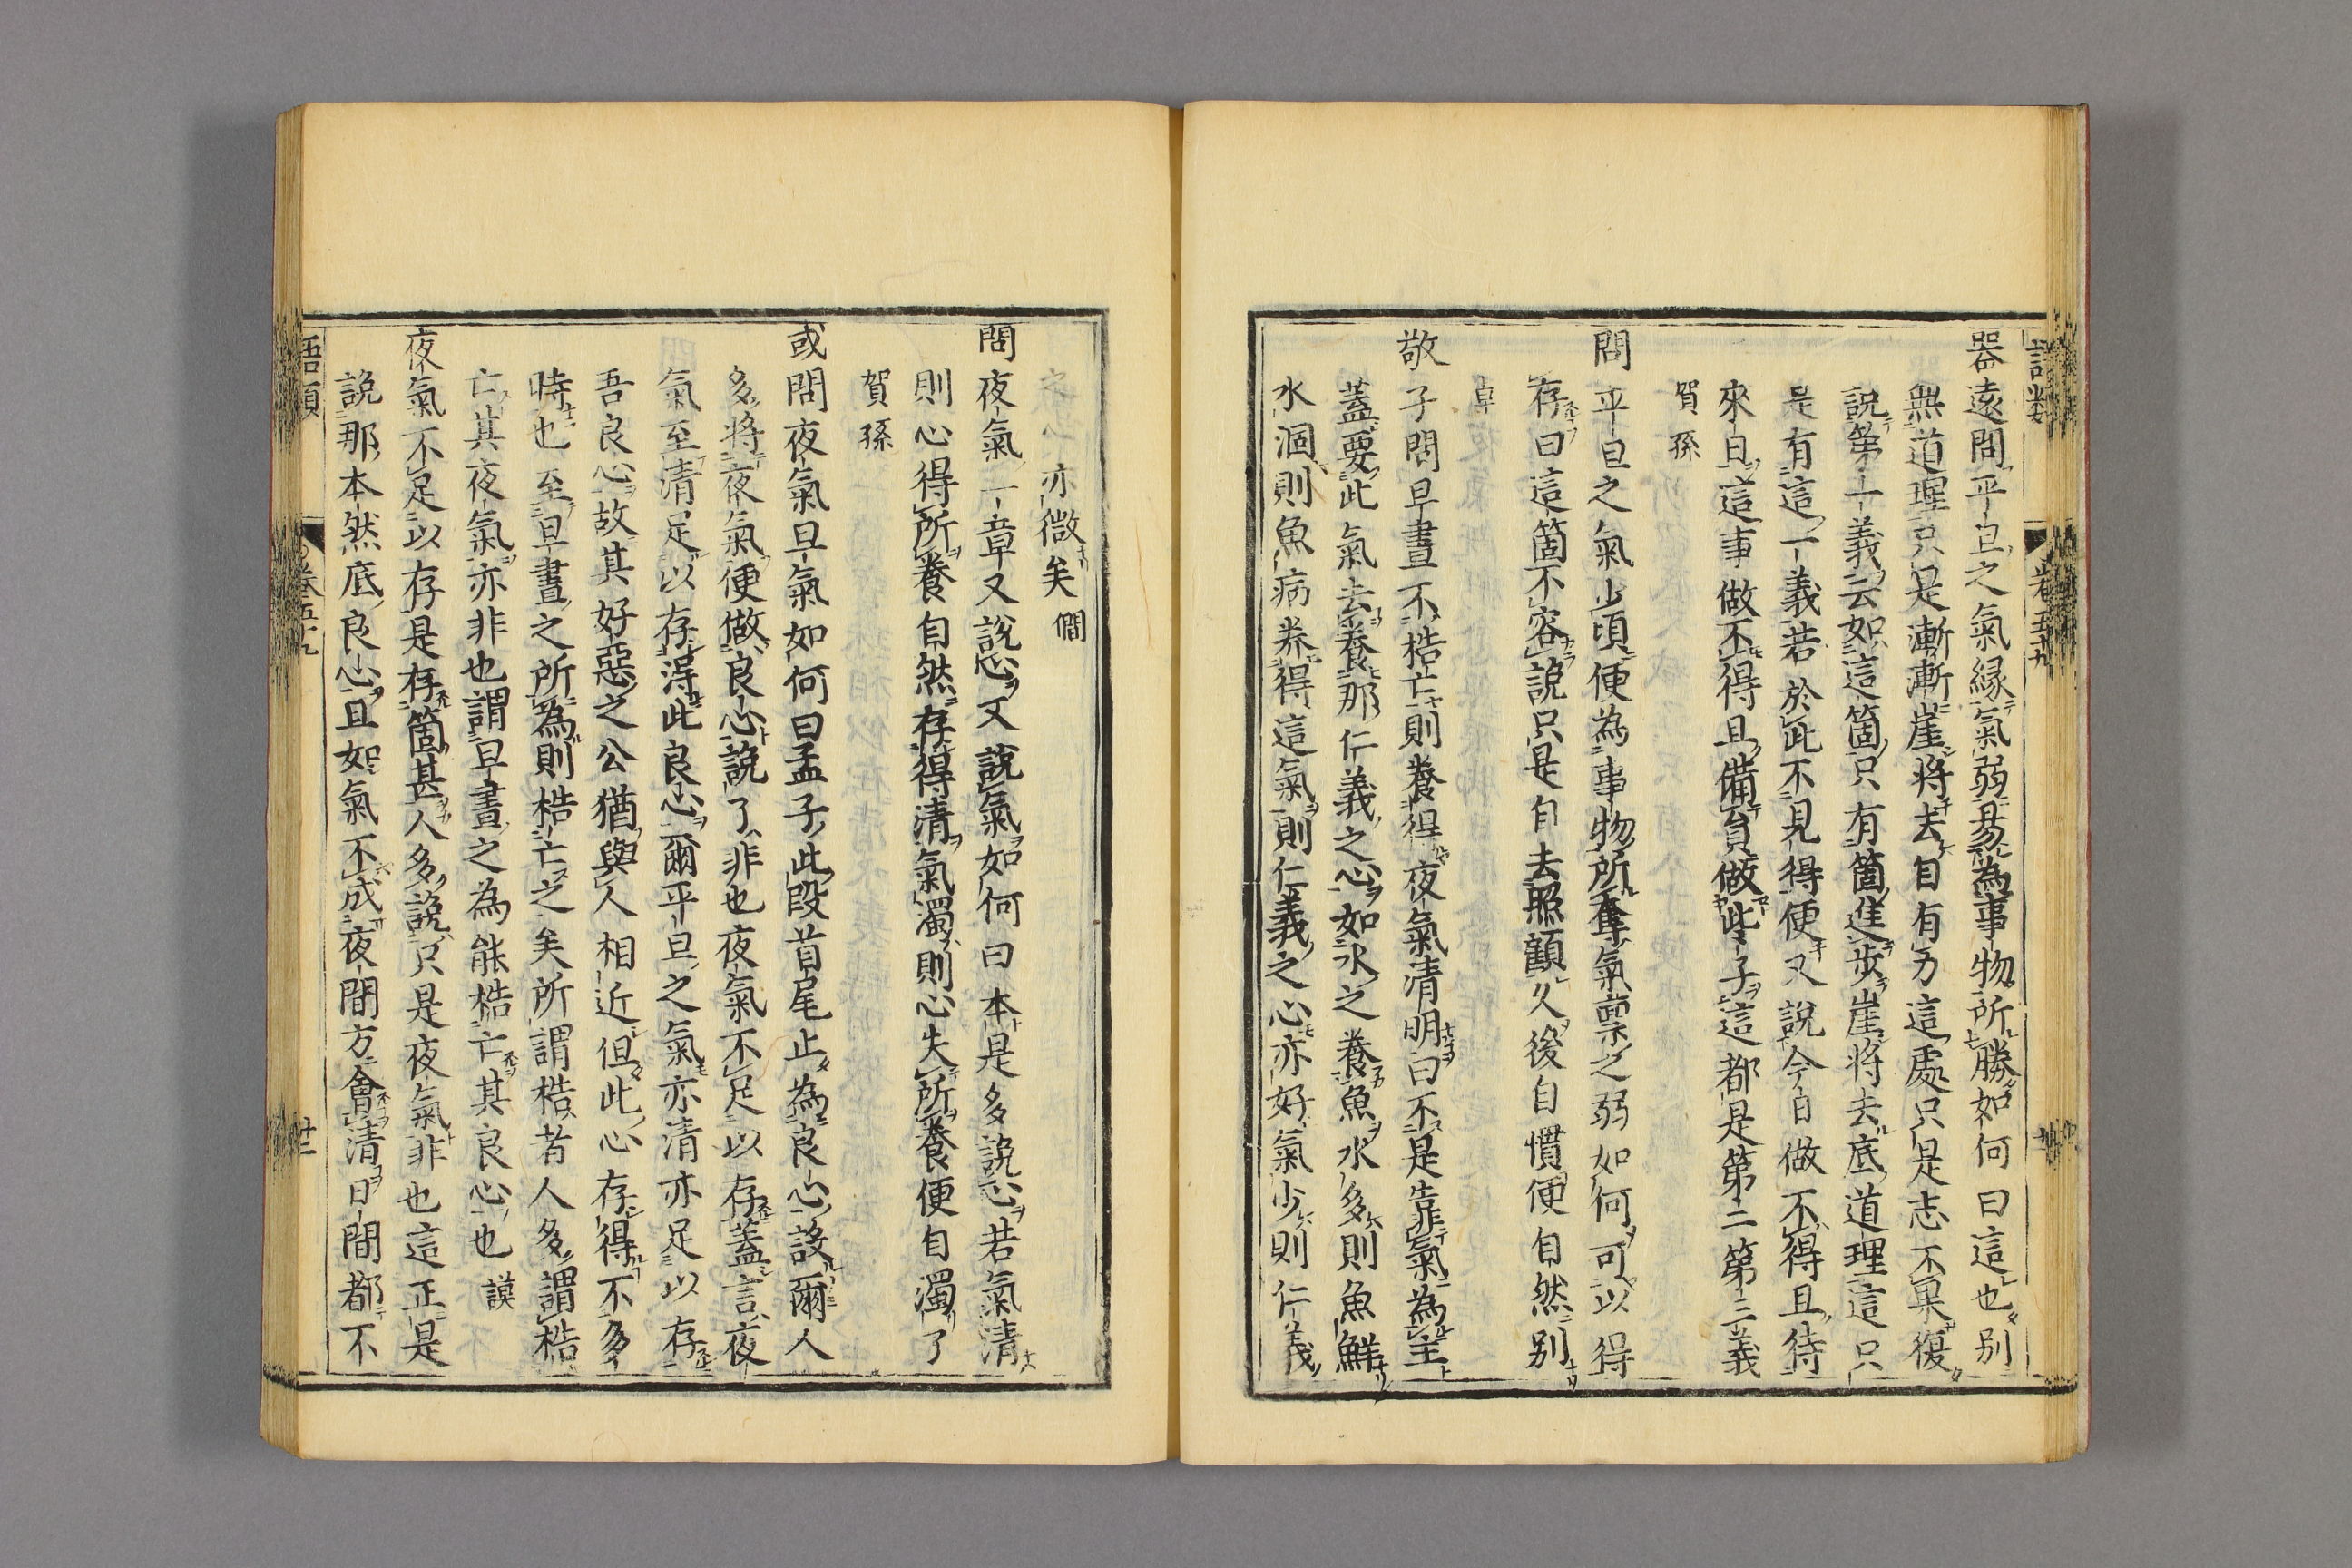 器遠問平旦之氣緣氣弱易為事物所勝如何曰這也別
無道理只是漸漸崖將去自有力這處只是志不果復
說第一義云如這箇只有箇進步崖將去底道理這只
是有這一義若於此不見得便又說今日做不得且待
來日這事做不得且備員做些子這都是第二第三義
賀孫
問平旦之氣少頃便為事物所奪氣稟之弱如何可以得
存曰這箇不容說只是自去照顧久後自慣便自然別
卓
敬子問旦晝不梏亡則養得夜氣清明曰不是靠氣為主
蓋要此氣去養那仁義之心如水之養魚水多則魚鮮
水涸則魚病養得這氣則仁義之心亦好氣少則仁義
卷五十九
之心亦微矣 僩
問夜氣一章又說心又說氣如何曰本是多說心若氣清
則心得所養自然存得清氣濁則心失所養便自濁了
賀孫
或問夜氣旦氣如何曰孟子此段首尾止為良心設爾人
多將夜氣便做良心說了非也夜氣不足以存蓋言夜
氣至清足以存得此良心爾平旦之氣亦清亦足以存
吾良心故其好惡之公猶與人相近但此心存得不多
時也至旦晝之所為則梏亡之矣所謂梏者人多謂梏
亡其夜氣亦非也謂旦晝之為能梏亡其良心也 謨
夜氣不足以存是存箇甚人多說只是夜氣非也這正是
說那本然底良心且如氣不成夜間方會清日間都不
語類
卷五十九
廿二